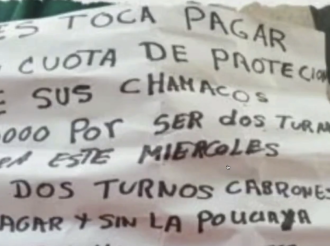 ES TOCA PAGAR
CUOTA DE PROTECION
E SUS CHAMACOS
000 POR SER dos TURN
ESTE MIERCOLES
DOS TURNOS CABRONES
AGAR Y SIN LA